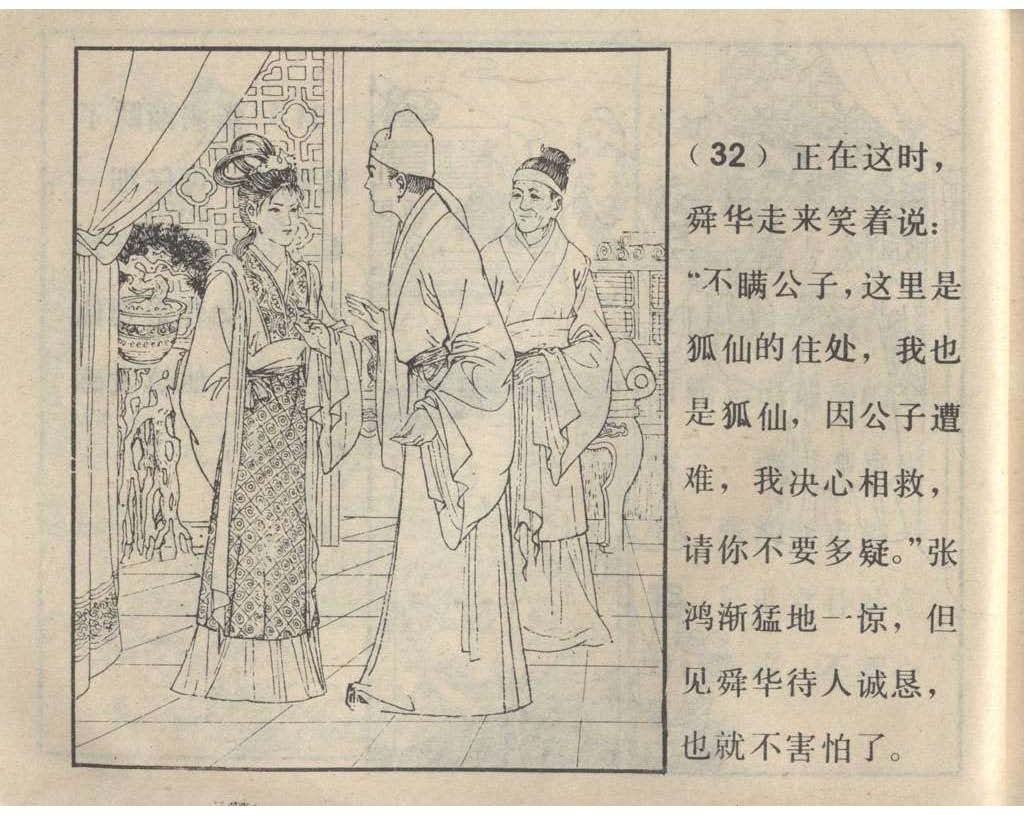 （32）正在这时，
舜华走来笑着说：
“不瞒公子，这里是
狐仙的住处，我也
是狐仙，因公子遭
难，我决心相救，
请你不要多疑。”张
鸿渐猛地一惊，但
见舜华待人诚恳，
也就不害怕了。